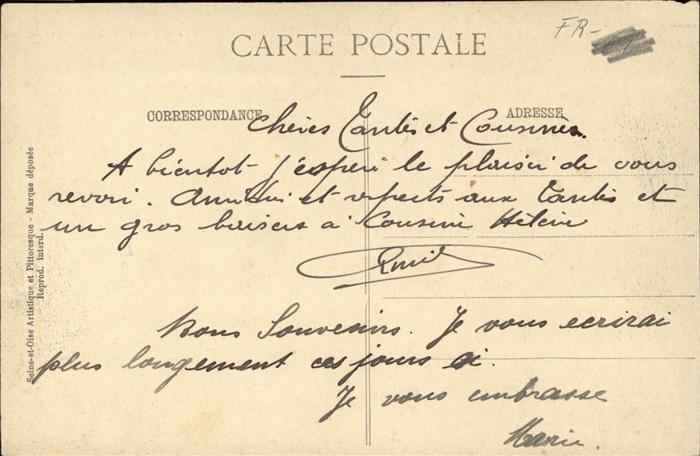 FR-
CARTE POSTALE
CORRESPONDANCE
ADRESSE
Chères Tantes et Cousines.
A bientot j'espère le plaisir de vous
revoir. Amitiés et respects aux Tantes et
un gros baisers à Cousine Hélène
Bons Souvenirs. Je vous ecrirai
plus longement ces jours ci.
Je vous embrasse
Marie.
Seine-et-Oise Artistique et Pittoresque - Marque déposée
Reprod. interd.